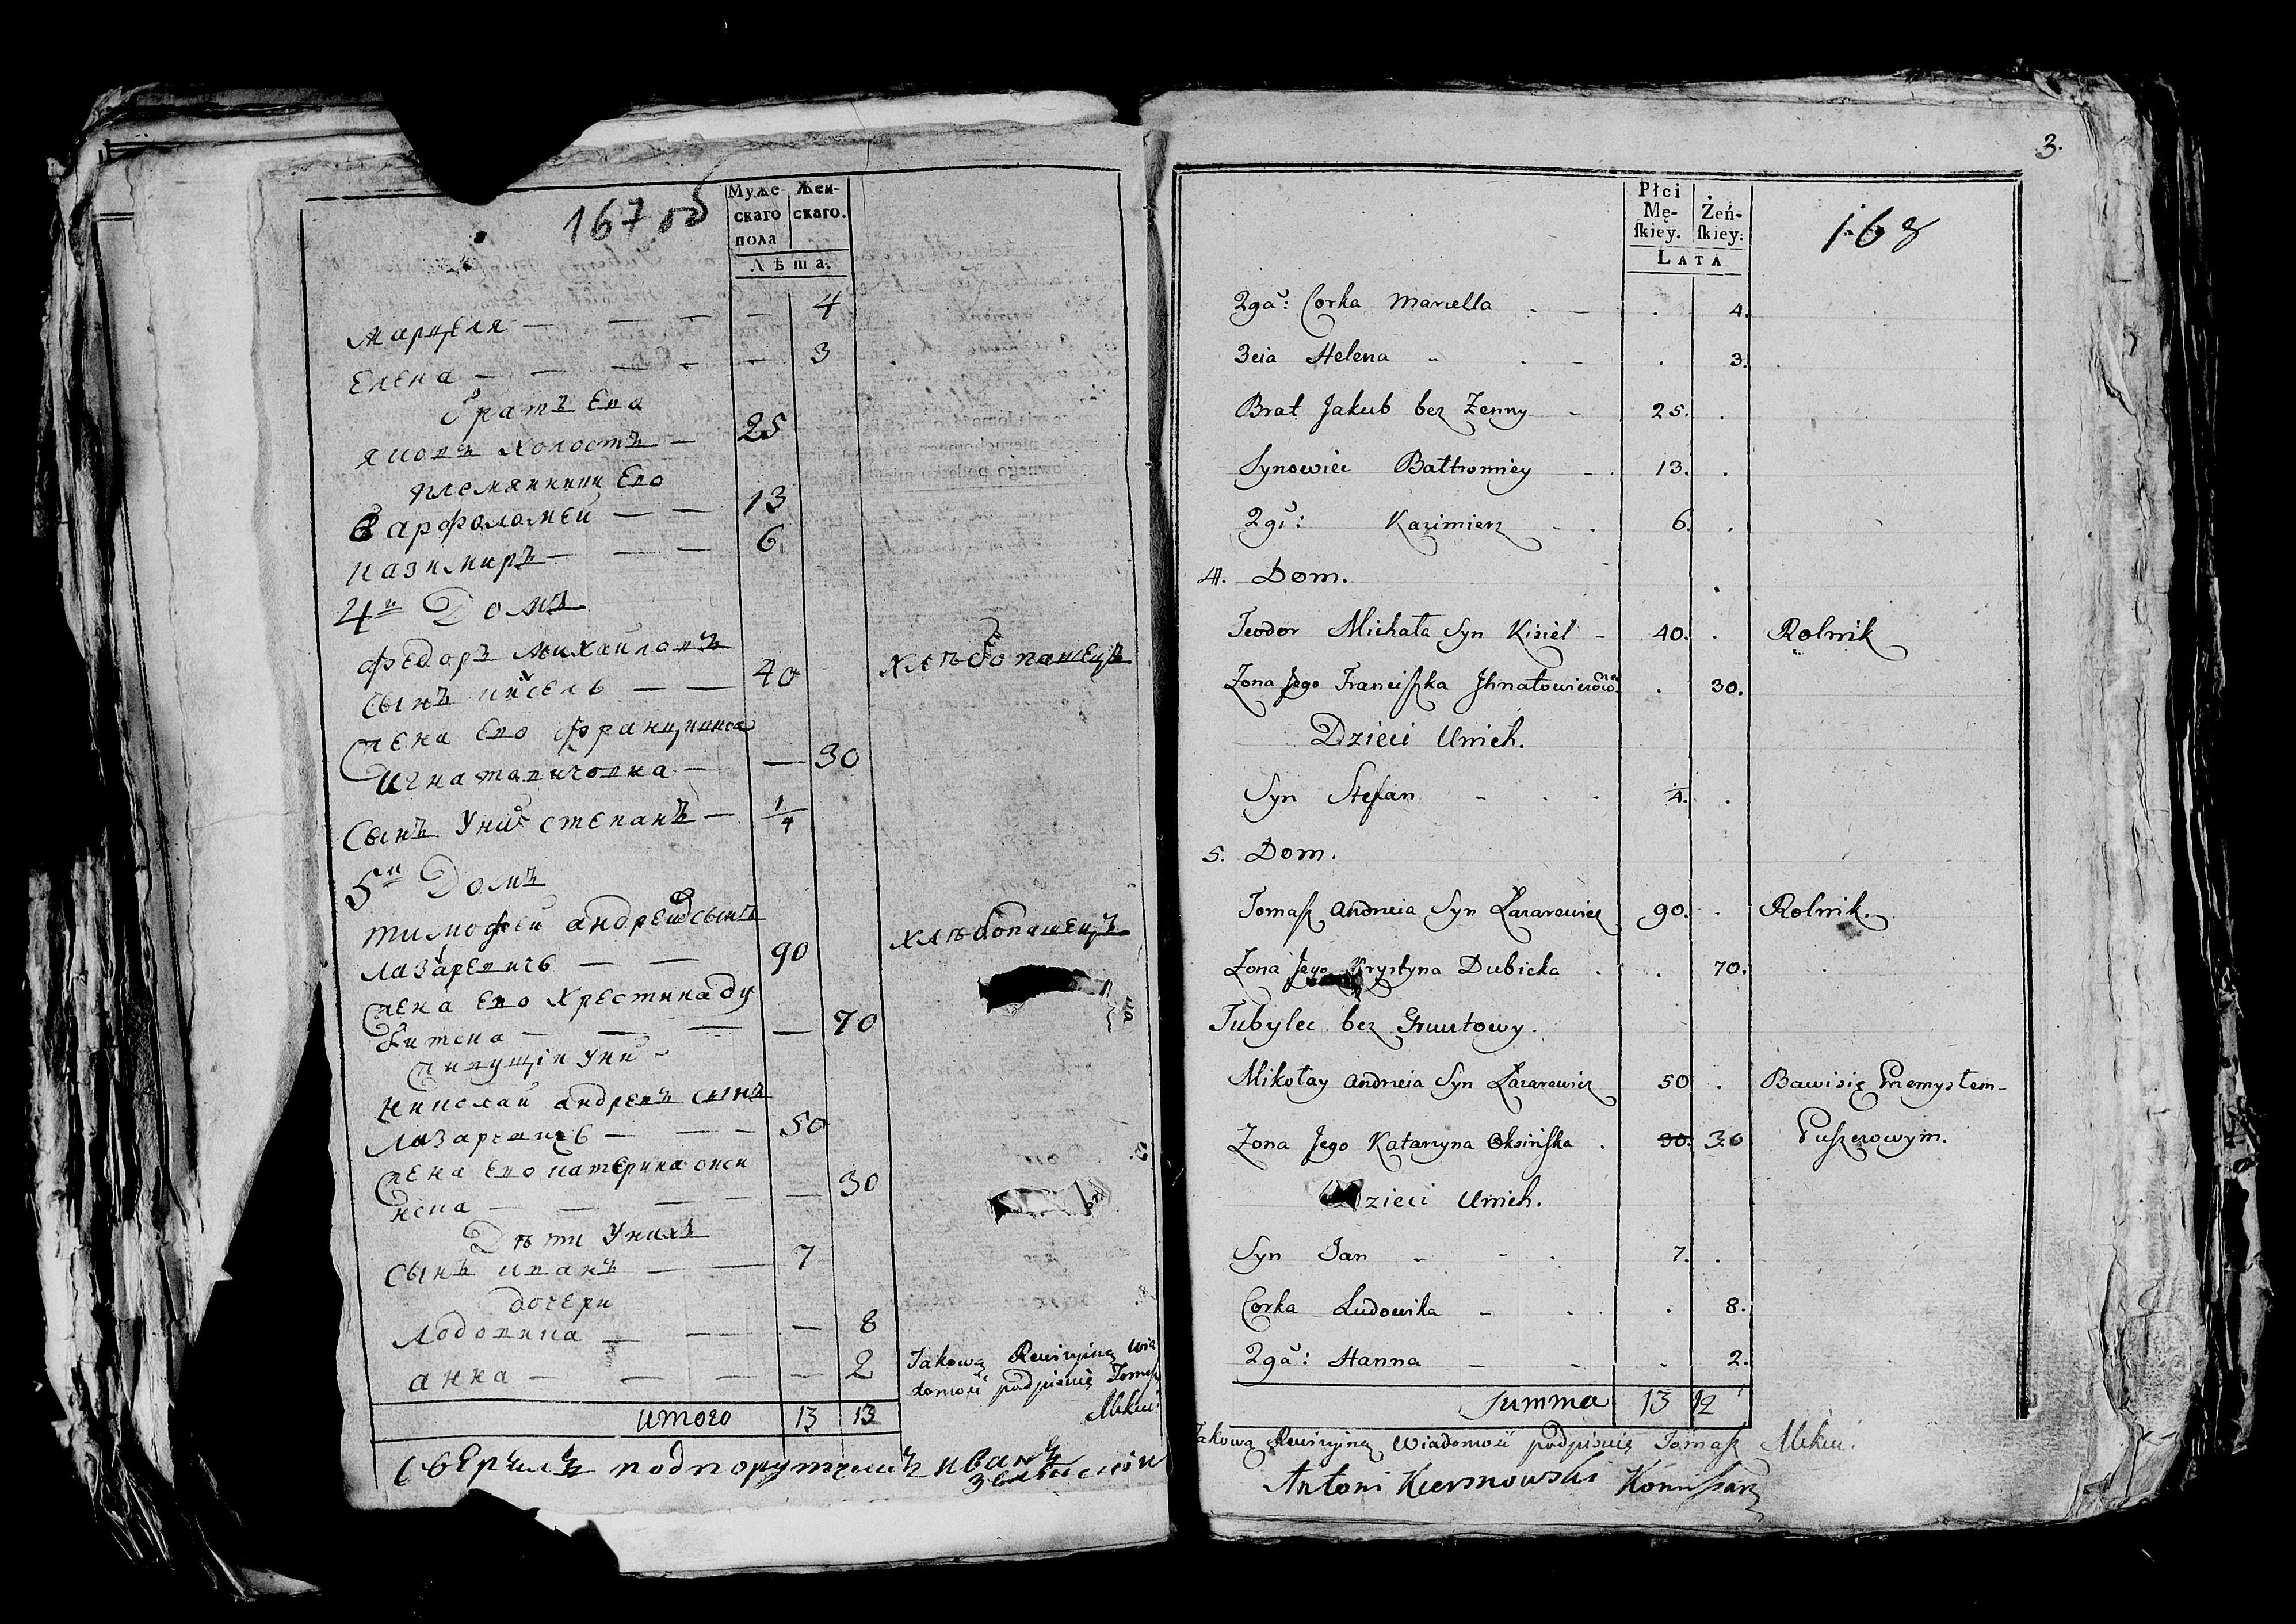 167 об
Муже- Жен-
скаго скаго.
пола
Лѣта.
Марцеля — — — — 4
Елена — — — — — 3
Братъ Его
Яковъ холостъ — 25
племянники Его
Варфоломей — — 13
Казимиръ — — — 6
4й Домъ
Федоръ Михайловъ
Сынъ Кисель — — 40 хлѣбопашецъ
Жена Его Францишка
Игнатовичовна — — 30
Сынъ У них Степанъ — 1/4
5й Домъ
Тимофей Андреевъ Сынъ
Лазаревичь — — 90 хлѣбопашецъ
Жена Его Хрестина Ду
битска — — — — 70
Живущіи У них
Николай Андреевъ Сынъ
Лазаревичь — — — 50
Жена Его Катерина Окси
нска — — — — 30
Дѣти У нихъ
Сынъ Иванъ — — 7
дочери
Лодовика — — — 8
Анна — — — — 2
Takową Rewizyiną wia
domość podpisuię Tomasz
Итого 13 13
Свѣрилъ подпорутчикъ Иванъ
3.
168
Płci
Mę- Żeń-
ſkiey. ſkiey.
LATA
2ga: Corka Marcella . — . 4.
3cia Helena - . — . 3.
Brat Jakub bez Zenny - 25. .
Synowiec Bałtromiey - . 13. .
2gi: Kazimierz - . 6. .
4. Dom.
Teodor Michała Syn Kisiel - 40. . Rolnik
Zona Jego Franciszka Jhnatowiczowna . 30.
Dzieci Unich.
Syn Stefan - . . 1/4. .
5. Dom.
Tomasz Andrzeia Syn Łazarewicz 90. . Rolnik.
Zona Jego Krystyna Dubicka . . 70.
Tubylec bez Gruntowy.
Mikołay Andrzeia Syn Łazarewicz 50 . Bawisię Przemysłem-
Zona Jego Katarzyna Oksińska . 30. 30 Puszczowym.
Dzieci Unich.
Syn Jan - - . 7. .
Corka Ludowika - . . . 8.
2ga: Hanna — - . 2.
Summa 13 12
Takową Rewizyiną Wiadomość podpisuię Tomasz
Antoni Kiersnowski Komisarz